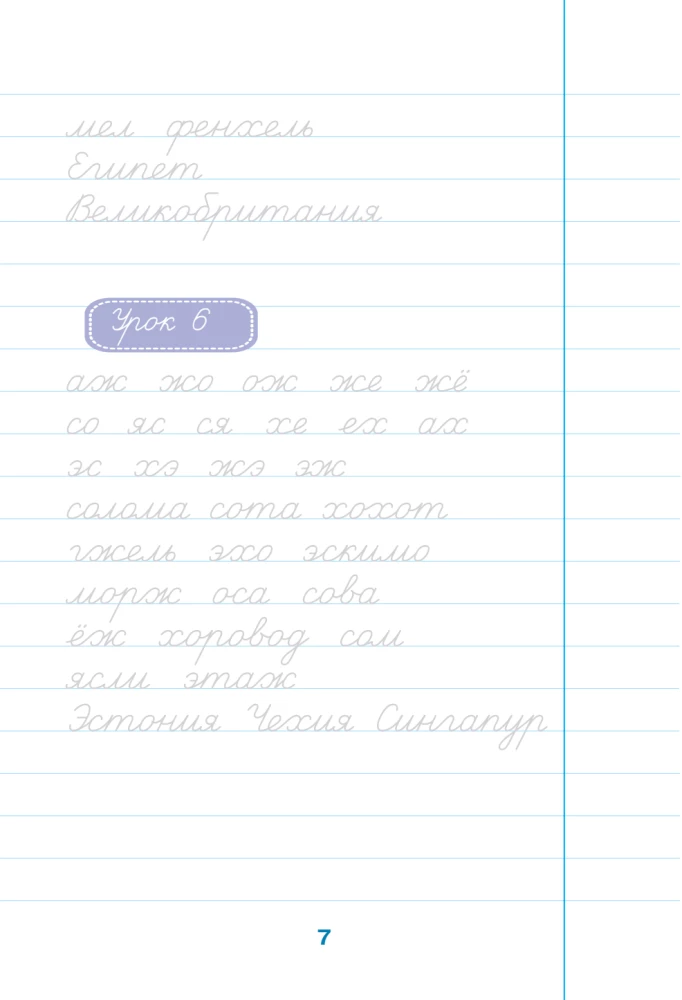 мел фенхель
Египет
Великобритания
Урок 6
аж жо ож же жё
со яс ся хе ех ах
эс хэ жэ эж
солома сота хохот
гжель эхо эскимо
морж оса сова
ёж хоровод сом
ясли этаж
Эстония Чехия Сингапур
7